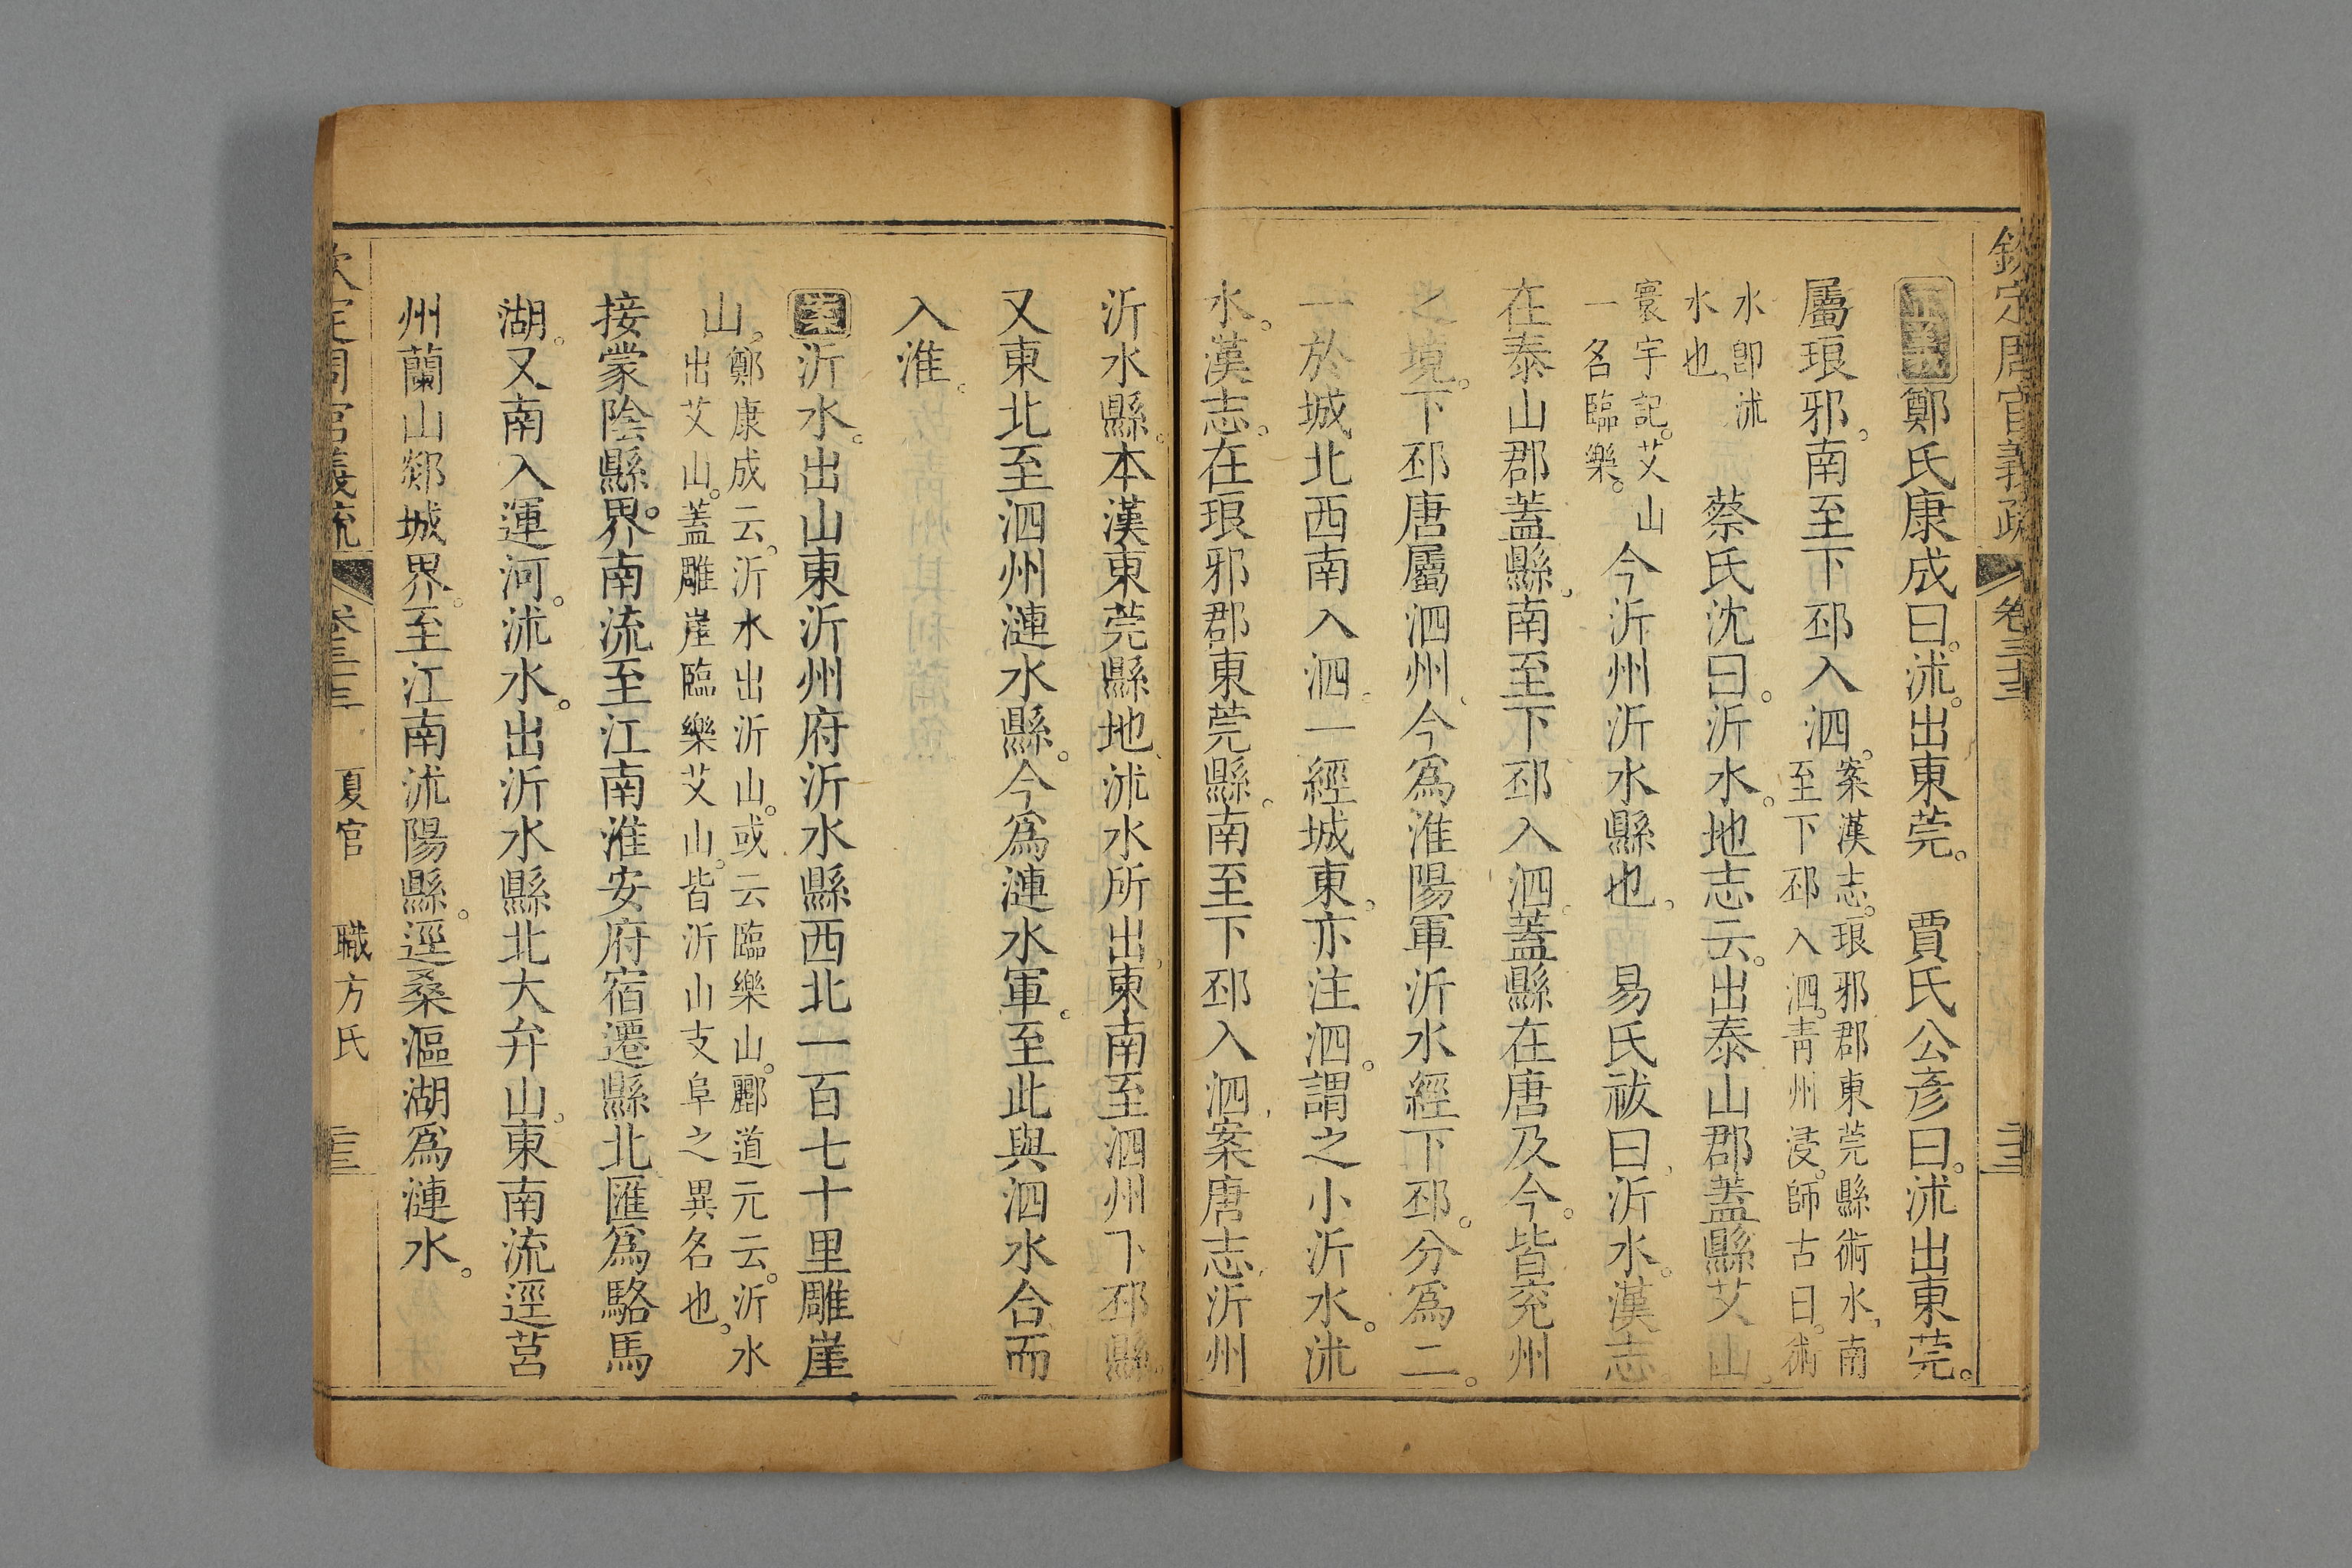 欽定周官義疏 卷三十三 三十三
正義鄭氏康成曰。沭。出東莞。 賈氏公彥曰。沭出東莞。
屬琅邪。南至下邳入泗。案漢志。琅邪郡東莞縣術水。南至下邳入泗。靑州浸。師古曰。術
水卽沭水也。 蔡氏沈曰。沂水。地志云。出泰山郡蓋縣艾山。
寰宇記。艾山一名臨樂。 今沂州沂水縣也。 易氏祓曰。沂水。漢志。
在泰山郡蓋縣。南至下邳入泗。蓋縣在唐及今。皆兗州
之境。下邳唐屬泗州。今爲淮陽軍沂水經下邳。分爲二。
一於城北西南入泗。一經城東。亦注泗。謂之小沂水。沭
水。漢志。在琅邪郡東莞縣。南至下邳入泗。案唐志。沂州
沂水縣。本漢東莞縣地。沭水所出。東南至泗州下邳縣。
又東北至泗州漣水縣。今爲漣水軍。至此與泗水合而
入淮。
沂水。出山東沂州府沂水縣西北一百七十里雕崖
山。鄭康成云。沂水出沂山。或云臨樂山。酈道元云。沂水出艾山。蓋雕崖臨樂艾山。皆沂山支阜之異名也。
接蒙陰縣界。南流至江南淮安府宿遷縣北匯爲駱馬
湖。又南入運河。沭水。出沂水縣北大弁山。東南流逕莒
州蘭山郯城界。至江南沭陽縣。逕桑漚湖爲漣水。
欽定周官義疏 卷三十三 夏官 職方氏 三十三